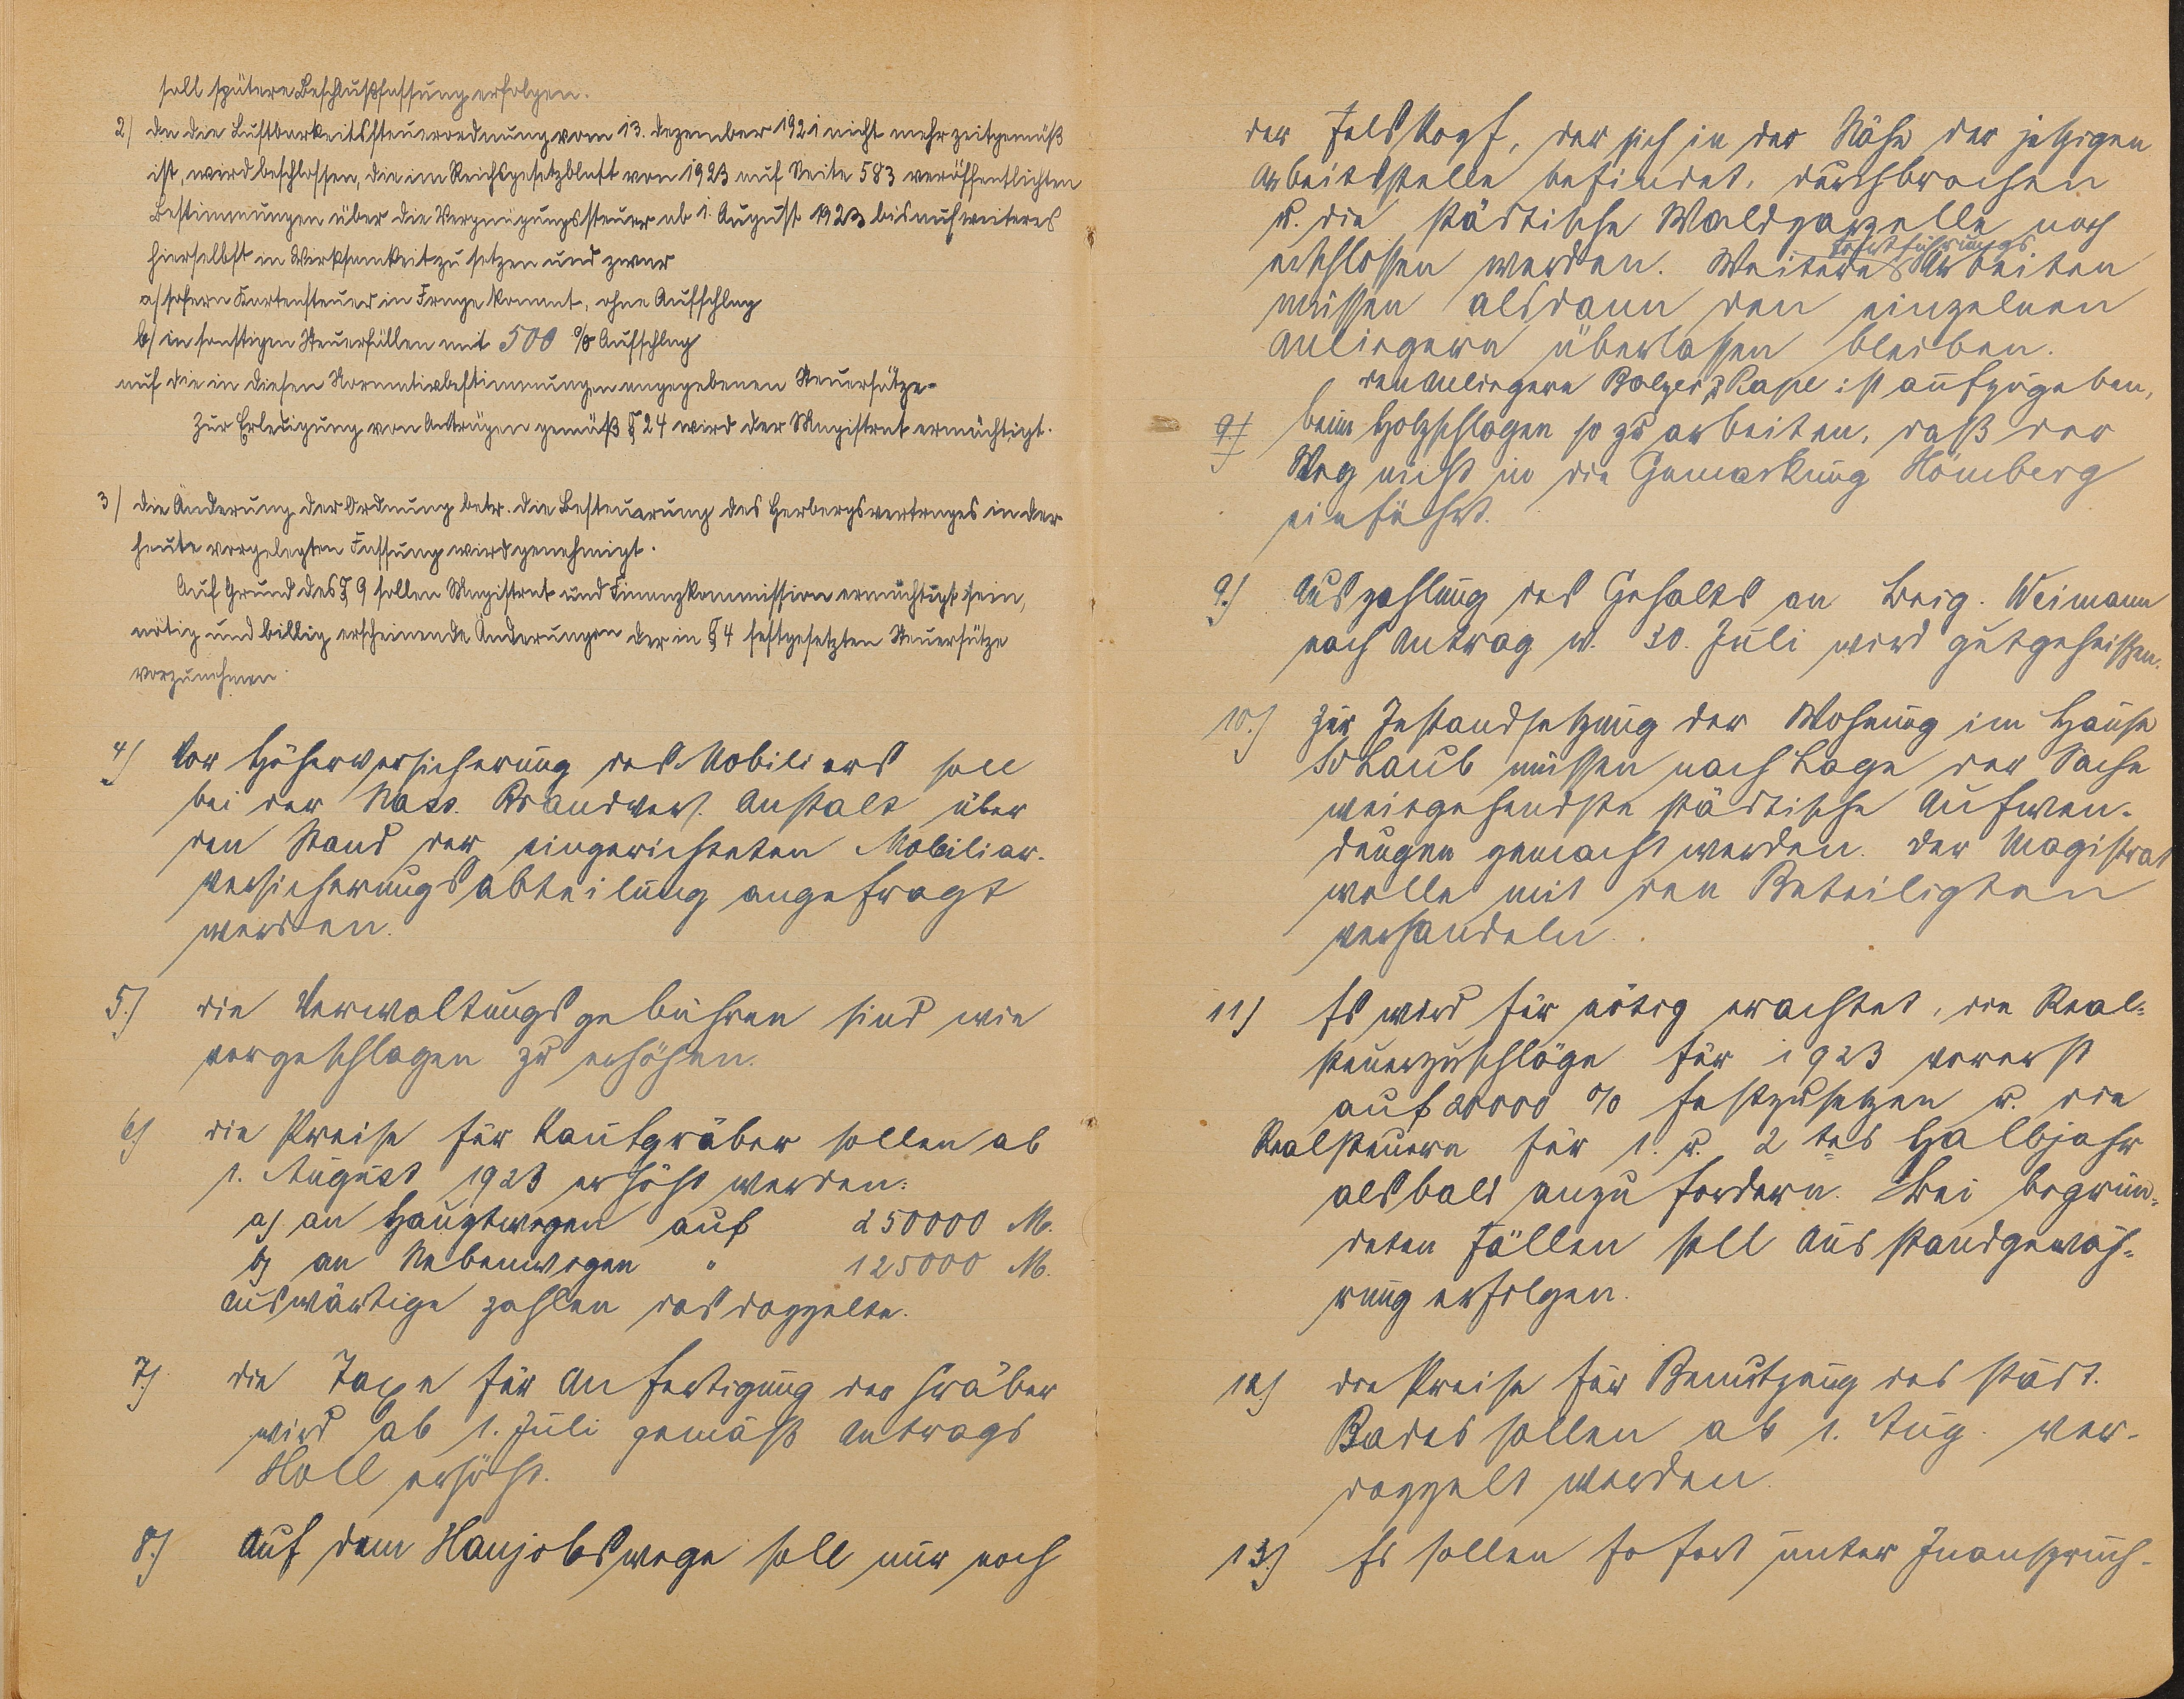 soll spätere Beschlußfassung erfolgen.
2) Da die Lustbarkeitssteuerordnung vom 13. Dezember 1921 nicht mehr zeitgemäß
ist, wird beschlossen, die im Reichsgesetzblatt von 1923 auf Seite 583 veröffentlichten
Bestimmungen über die Vergnügungssteuer ab 1. August 1923 bis auf weiteres
hierselbst in Wirksamkeit zu setzen und zwar
a) sofern Kartensteuer in Frage kommt, ohne Aufschlag
b) in sonstigen Steuerfällen mit 500 % Aufschlag
auf die in diesen Normativbestimmungen angegebenen Steuersätze.
Zur Erledigung von Anträgen gemäß § 24 wird der Magistrat ermächtigt.
3) Die Änderung der Ordnung betr. die Besteuerung des Herbergsvertrages in der
heute vorgelegten Fassung wird genehmigt.
Auf Grund des § 9 sollen Magistrat und Finanzkommission ermächtigt sein,
nötig und billig erscheinende Änderungen der in § 4 festgesetzten Steuersätze
vorzunehmen
4) Vor Höherversicherung des Mobiliars soll
bei der Nass. Brandvers. Anstalt über
den Stand der eingerichteten Mobiliar-
versicherungsabteilung angefragt
werden.
5.) Die Verwaltungsgebühren sind wie
vorgeschlagen zu erhöhen.
6) Die Preise für Kaufgräber sollen ab
1. August 1923 erhöht werden:
a) an Hauptwegen auf 250000 M.
b) an Nebenwegen " 125000 M.
Auswärtige zahlen das doppelte.
7.) Die Taxe für Anfertigung der Gräber
wird ab 1. Juli gemäß Antrags
Noll erhöht.
8.) Auf dem Hanjobswege soll nur noch
der Felskopf, der sich in der Nähe der jetzigen
Arbeitsstelle befindet, durchbrochen
u. die städtische Waldparzelle noch
erschlossen werden. Weitere Fortführungs Arbeiten
müssen alsdann den einzelnen
Anliegern überlassen bleiben.
Den Anliegern Balzer & Kape ist aufzugeben,
9) beim Holzschlagen so zu arbeiten, daß der
Weg nicht in die Gemarkung Hömberg
einführt.
9.) Auszahlung des Gehalts an Beig. Weimann
nach Antrag v. 30. Juli wird gutgeheißen.
10.) Zur Instandsetzung der Wohnung im Hause
Schaub müssen nach Lage der Sache
weitgehendste städtische Aufwen-
dungen gemacht werden. Der Magistrat
wolle mit den Beteiligten
verhandeln.
11) Es wird für nötig erachtet, die Real-
steuerzuschläge für 1923 vorerst
auf 20000 % festzusetzen u. die
Realsteuern für 1. u. 2 tes Halbjahr
alsbald anzufordern. Bei begrün-
deten Fällen soll Ausstandgewäh-
rung erfolgen.
12) Die Preise für Benutzung des städt.
Bades sollen ab 1. Aug. ver-
doppelt werden.
13.) Es sollen sofort unter Inanspruch-